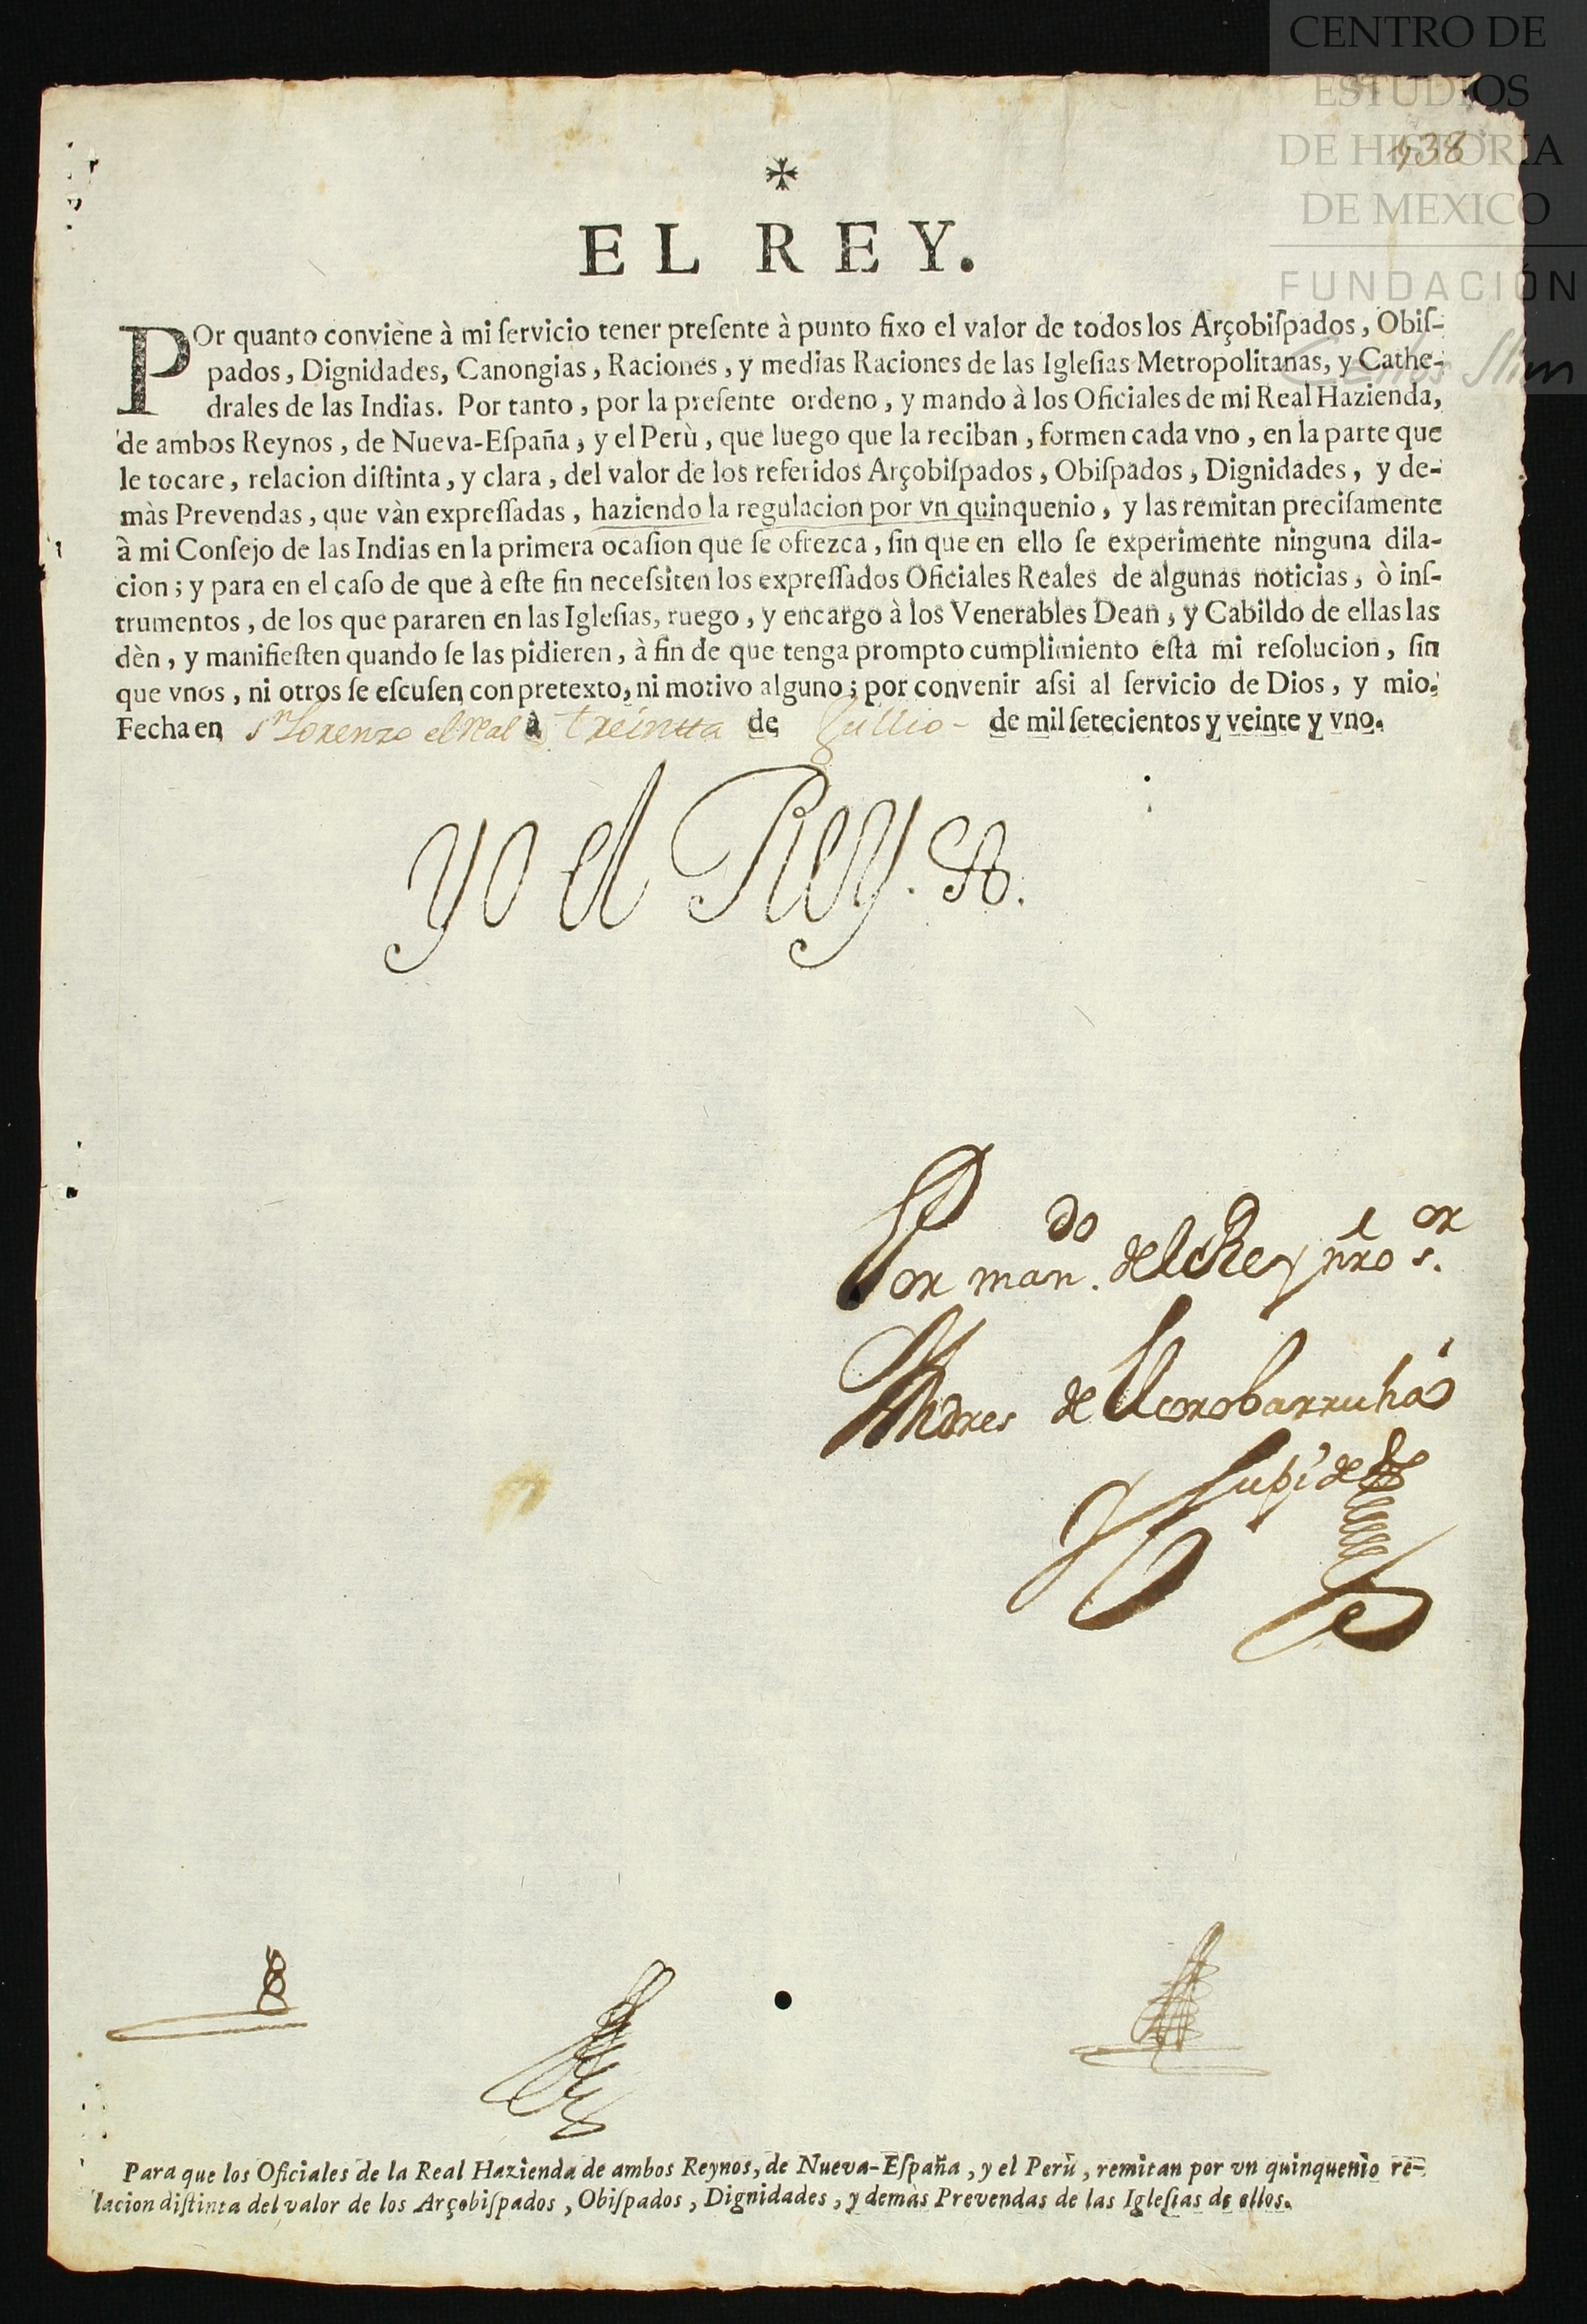 CENTRO DE
ESTUDIOS
DE HISTORIA
DE MEXICO
FUNDACIÓN
Carlos Slim
438
EL REY.
POr quanto conviene à mi ſervicio tener preſente à punto fixo el valor de todos los Arçobiſpados, Obiſ-
pados, Dignidades, Canongias, Raciones, y medias Raciones de las Igleſias Metropolitanas, y Cathe-
drales de las Indias. Por tanto, por la preſente ordeno, y mando à los Oficiales de mi Real Hazienda,
de ambos Reynos, de Nueva-Eſpaña, y el Perù, que luego que la reciban, formen cada vno, en la parte que
le tocare, relacion diſtinta, y clara, del valor de los referidos Arçobiſpados, Obiſpados, Dignidades, y de-
màs Prevendas, que vàn expreſſadas, haziendo la regulacion por vn quinquenio, y las remitan preciſamente
à mi Conſejo de las Indias en la primera ocaſion que ſe ofrezca, ſin que en ello ſe experimente ninguna dila-
cion; y para en el caſo de que à eſte fin neceſsiten los expreſſados Oficiales Reales de algunas noticias, ò inſ-
trumentos, de los que pararen en las Igleſias, ruego, y encargo à los Venerables Dean, y Cabildo de ellas las
dèn, y manifieſten quando ſe las pidieren, à fin de que tenga prompto cumplimiento eſta mi reſolucion, ſin
que vnos, ni otros ſe eſcuſen con pretexto, ni motivo alguno; por convenir aſsi al ſervicio de Dios, y mio.
Fecha en Sn Lorenzo el Real à treintta de Jullio de mil ſetecientos y veinte y vno.
Yo el Rey.
Por mando. del Rey nro sor.
Andres de
Para que los Oficiales de la Real Hazienda de ambos Reynos, de Nueva-Eſpaña, y el Perù, remitan por vn quinquenio re-
lacion diſtinta del valor de los Arçobiſpados, Obiſpados, Dignidades, y demàs Prevendas de las Igleſias de ellos.